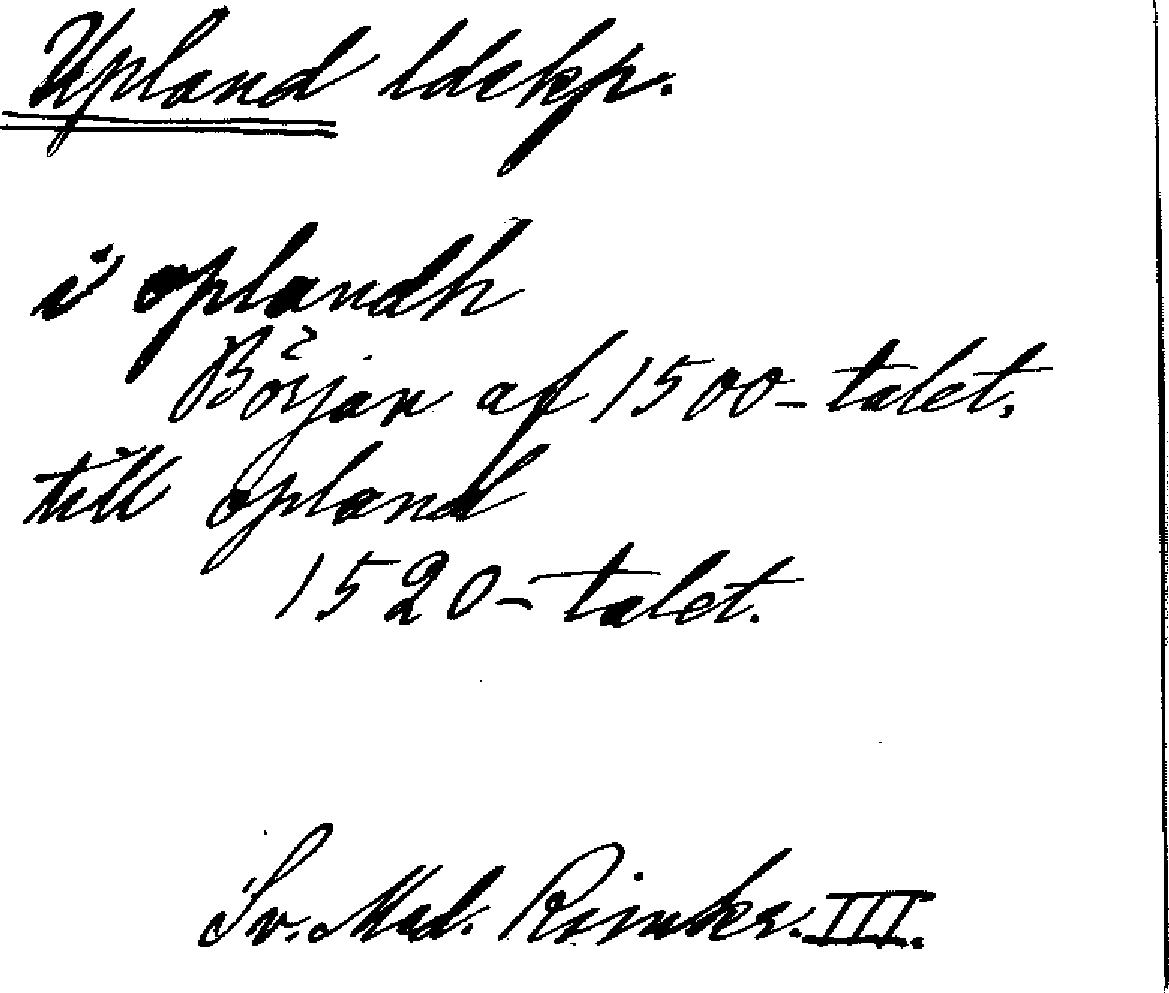 Upland ldskp.
i oplandh
Början af 1500-talet.
till opland
1520-talet.
Sv. Med. Rimkr. III.